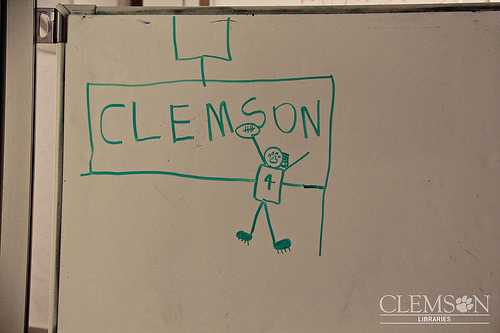 CLEMSON
4
CLEMSON
LIBRARIES